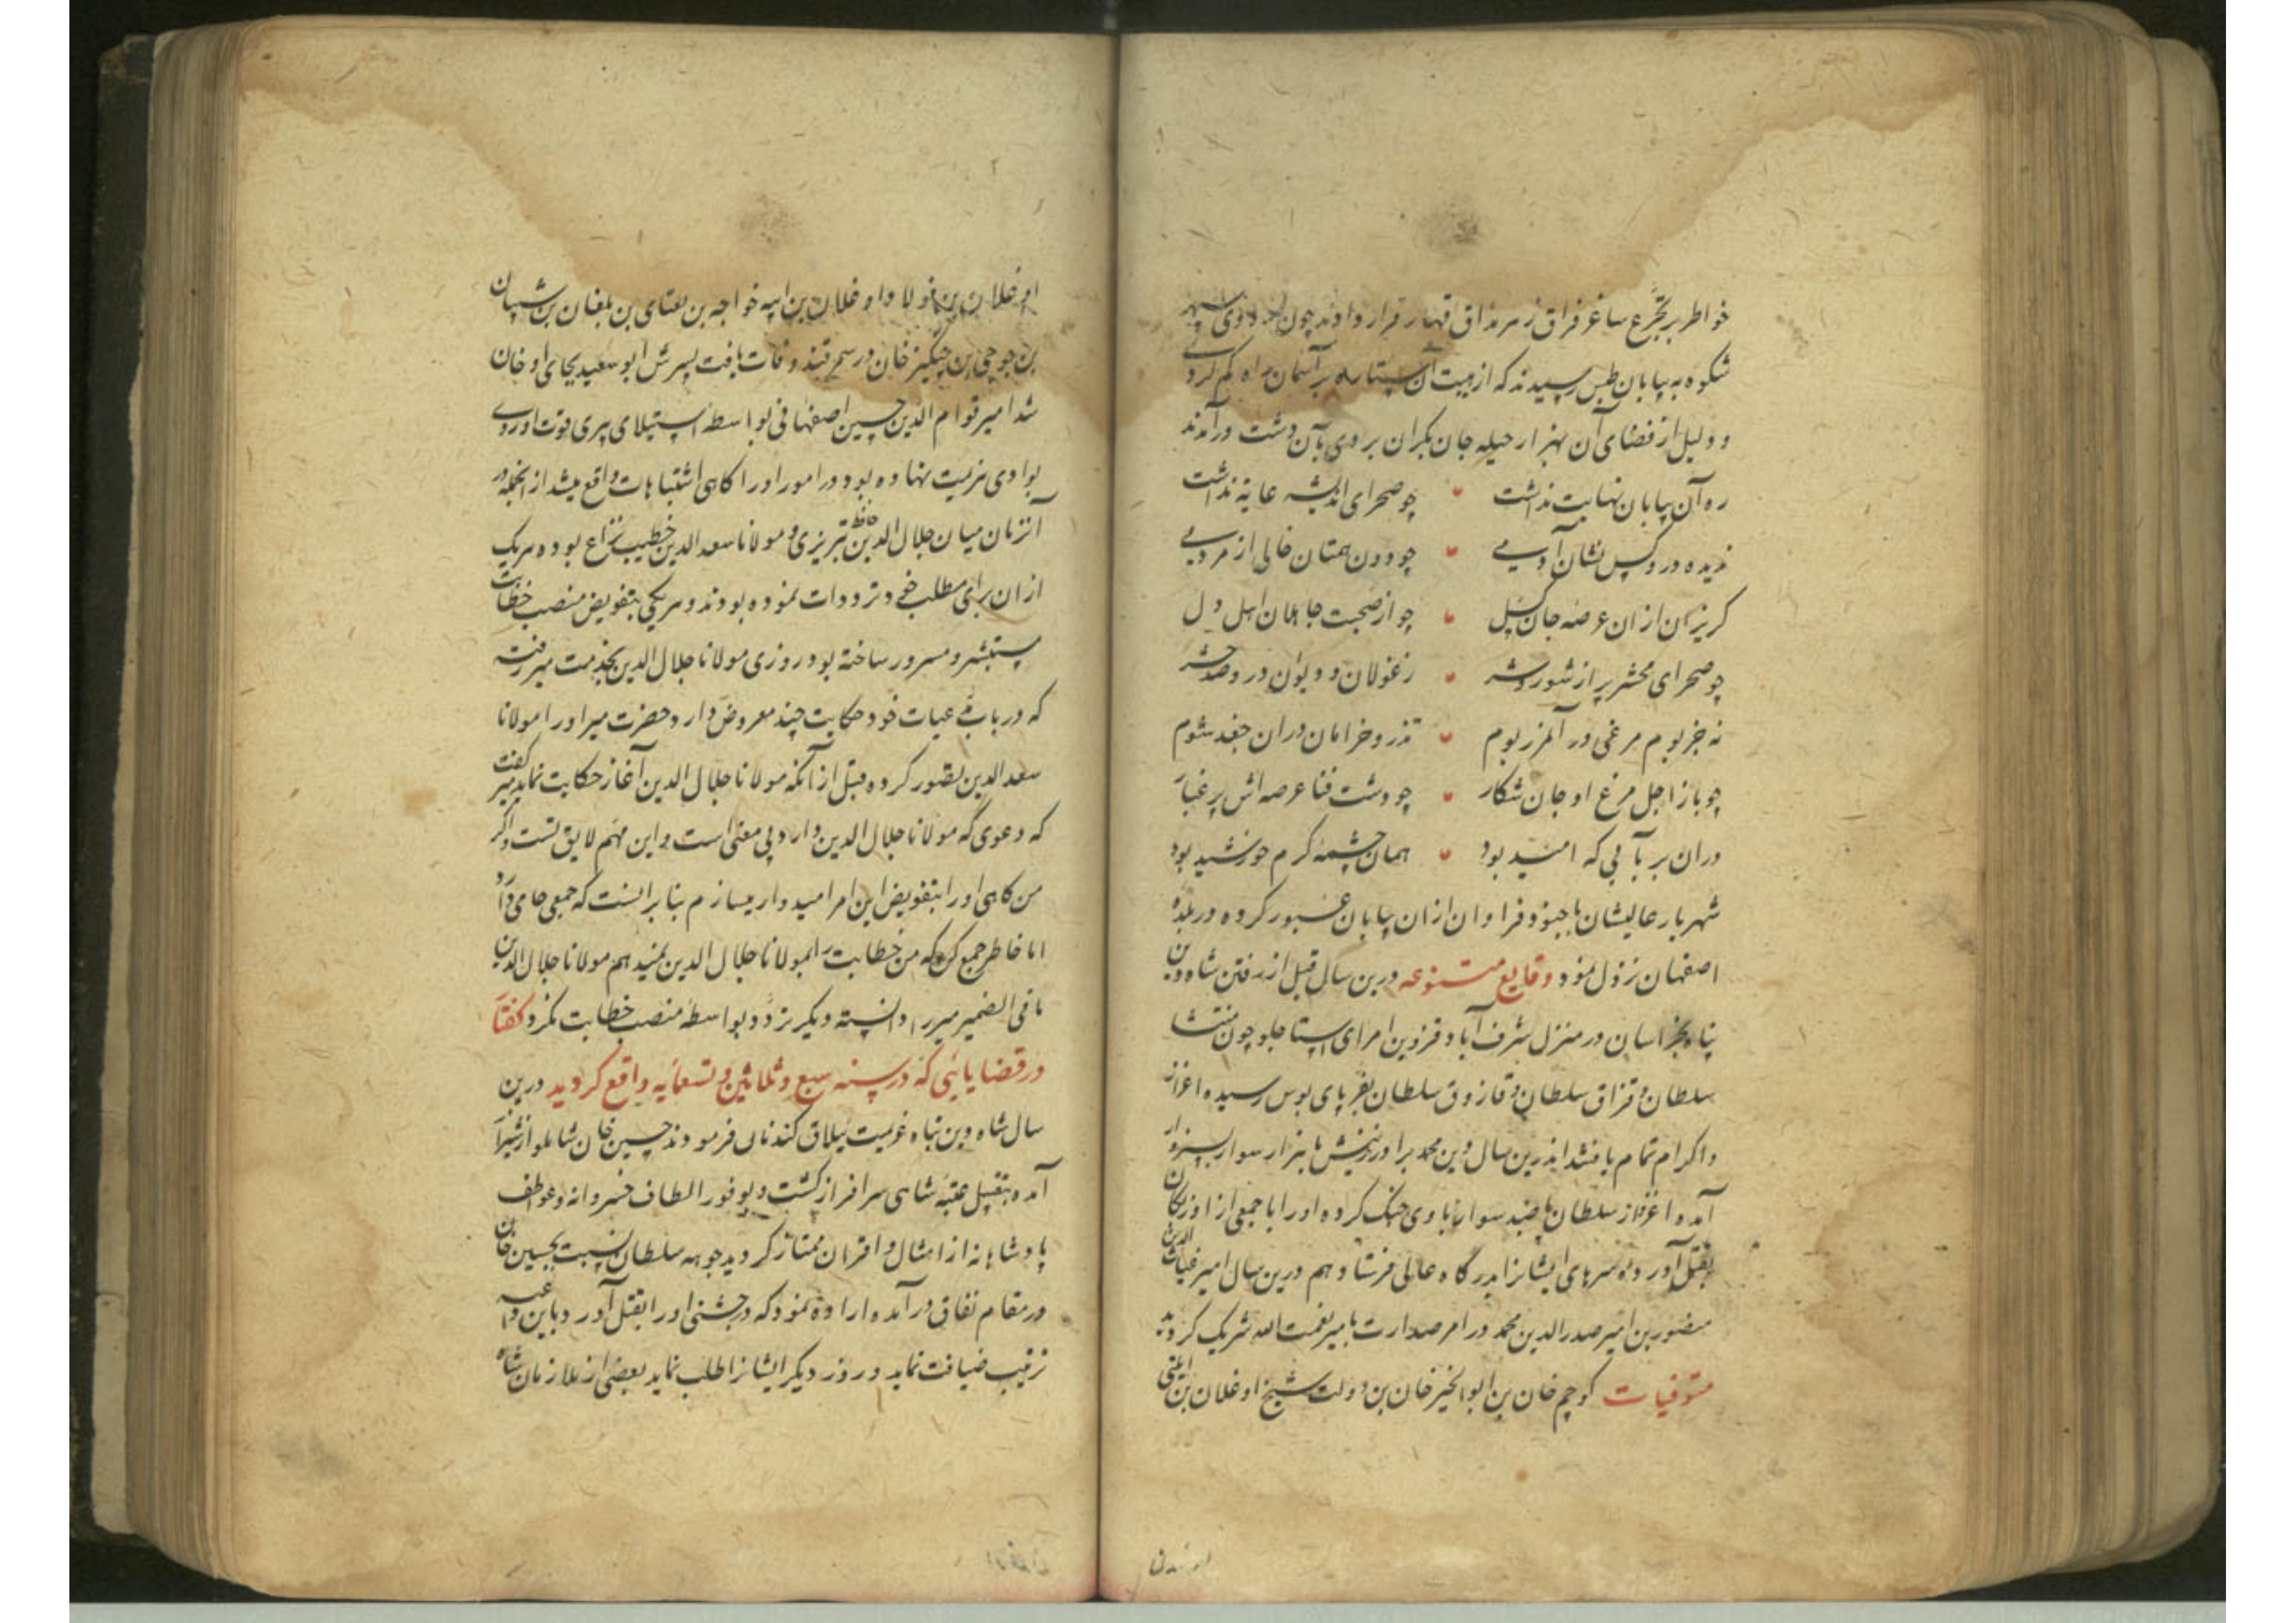 خواطر بر تجرع ساغر فراق زهر مذاق قهار قرار دادند چون اردوی سپهر
شکوه به بیابان طبس رسیدند که از هیبت آن ستاره بر آسمان راه کم کردی
و دلیل از فضای آن بهزار حیله جان بکران بردی بآن دشت درآمدند
ره آن بیابان نهایت نداشت چو صحرای اندیشه غایة نداشت
ندیده درو کس نشان آدمی چو دون همتان خالی از مردمی
کریزان ازان عرصه جان کسل چو از صحبت جاهلان اهل دل
چو صحرای محشر پر از شور و شر زغولان و دیوان درو صد حشر
نه جز بوم مرغی در آن مرز بوم تذرو خرامان دران جغد شوم
چو باز اجل مرغ او جان شکار چو دشت فنا عرصه اش پر غبار
دران بر بآبی که امید بود همان چشمه کرم خورشید بود
شهریار عالیشان با جنود فراوان ازان بیابان عبور کرده در بلده
اصفهان نزول نمود وقایع متنوعه درین سال قبل از رفتن شاه دین
پناه بخراسان در منزل شرف آباد قزوین امرای استاجلو چون منتشا
سلطان و قزاق سلطان و قازوق سلطان بعز پای بوس رسیده اعزاز
و اکرام تمام یافتند اندرین سال دین محمد برادر زینش با هزار سوار بسبزوار
آمده اغزلار سلطان با صد سوار با وی جنک کرده او را با جمعی از اوزبکان
بقتل آورد و سرهای ایشانرا بدرگاه عالی فرستاد هم درین سال امیر غیاث الدین
منصور بن امیر صدرالدین محمد در امر صدارت با میر نعمت الله شریک کردید
متوفیات کوچم خان بن ابوالخیر خان بن دولت شیخ اوغلان بن ایلتی
اوغلان بن فولاد اوغلان بن ایبه خواجه بن بغتای بن بلغان بن شیبان
بن جوجی بن چنکیز خان در سمرقند وفات یافت پسرش ابو سعید بجای او خان
شد امیر قوام الدین حسین اصفهانی بواسطه استیلای پیری قوت او روی
بوادی هزیمت نهاده بود و در امور او را کاهی اشتباهات واقع میشد از انجمله در
آنزمان میان جلال الدین حافظ تبریزی و مولانا سعد الدین خطیب نزاع بوده هر یک
ازان برای مطلب خود ترددات نموده بودند و هر یکی بتفویض منصب خطابت
مستبشر و مسرور ساخته بود روزی مولانا جلال الدین بخدمت میر رفته
که در باب مدعیات خود حکایت چند معروض دارد حضرت میر او را مولانا
سعد الدین تصور کرده قبل از آنکه مولانا جلال الدین آغاز حکایت نماید میر گفت
که دعوی که مولانا جلال الدین دارد بی معنی است و این مهم لایق تست و اکر
من کاهی او را بتفویض این امر امیدوار میسازم بنا بر آنست که جمعی حامی دارد
اما خاطر جمع کن که من خطابت را بمولانا جلال الدین نمیدهم مولانا جلال الدین
ما فی الضمیر میر را دانسته دیکر تردد بواسطه منصب خطابت نکرد گفتار
در قضایائی که در سنه سبع و ثلاثین و تسعمائه واقع کردید درین
سال شاه دین پناه عزیمت ییلاق کندمان فرمودند حسین خان شاملو از شیراز
آمده بتقبیل عتبه شاهی سرافراز کشت و بوفور الطاف خسروانه و عواطف
پادشاهانه از امثال و اقران ممتاز کردید جوهه سلطان نسبت بحسین خان
در مقام نفاق درآمده اراده نمود که در جشنی او را بقتل آورد و باین داعیه
ترتیب ضیافت نماید و روز دیکر ایشانرا طلب نماید بعضی از ملازمان شاه